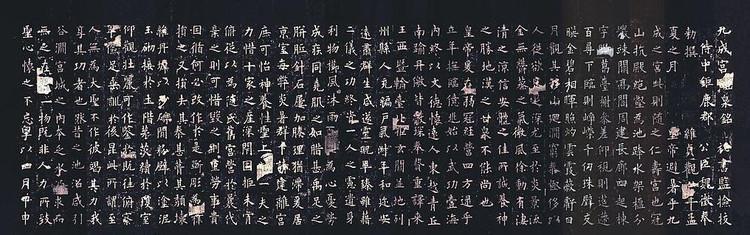 九成宮醴泉銘 秘書監檢校
侍中鉅鹿郡公臣魏徵奉
勅撰 維貞觀六年孟
夏之月 皇帝避暑乎九
成之宮此則隨之仁壽宮也冠
山抗殿絕壑為池跨水架楹分
巖竦闕高閣周建長廊四起棟
宇膠葛臺榭參差仰視則迢遞
百尋下臨則崢嶸千仞珠璧交
暎金碧相暉照灼雲霞蔽虧日
月觀其移山迴澗窮泰極侈以
人從欲良足深尤至於炎景流
金無鬱蒸之氣微風徐動有淒
清之涼信安體之佳所誠養神
之勝地漢之甘泉不能尚也
皇帝爰在弱冠經營四方逮乎
立年撫臨億兆始以武功壹海
內終以文德懷遠人東越青丘
南踰丹儌皆獻琛奉贄重譯來
王西暨輪臺北拒玄闕並地列
州縣人充編戶氣淑年和邇安
遠肅群生咸遂靈貺畢臻雖藉
二儀之功終資一人之慮遺身
利物櫛風沐雨百姓為心憂勞
成疾同堯肌之如腊甚禹足之
胼胝針石屢加腠理猶滯爰居
京室每弊炎暑群下請建離宮
庶可怡神養性聖上愛一夫之
力惜十家之產深閉固拒未肯
俯從以為隨氏舊宮營於曩代
棄之則可惜毀之則重勞事貴
因循何必改作於是斲彫為樸
損之又損去其泰甚葺其頹壞
雜丹墀以沙礫間粉壁以塗泥
玉砌接於土階茅茨續於瓊室
仰觀壯麗可作鑒於既往俯察
卑儉足垂訓於後昆此所謂至
人無為大聖不作彼竭其力我
享其功者也然昔之池沼咸引
谷澗宮城之內本乏水源求而
無之在乎一物既非人力所致
聖心懷之不忘粵以四月甲申